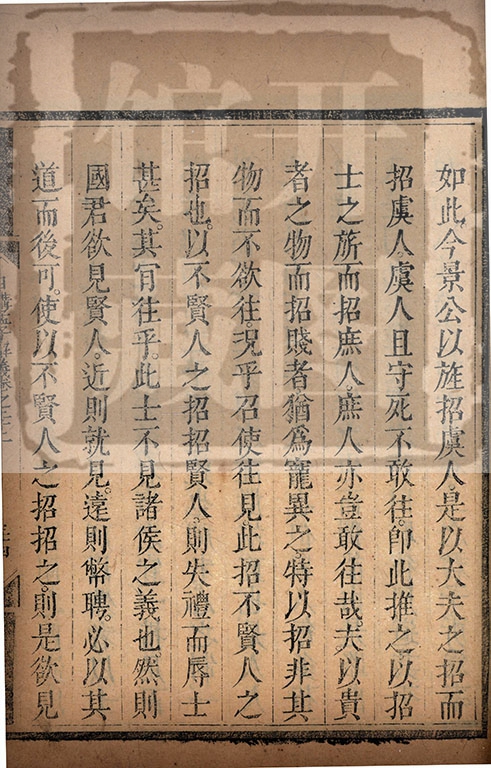 如此今景公以旌招虞人是以大夫之招而
招虞人虞人且守死不敢往即此推之以招
士之旂而招庶人庶人亦豈敢往哉夫以貴
者之物而招賤者猶爲寵異之特以招非其
物而不欲往况乎召使往見此招不賢人之
招也以不賢人之招招賢人則失禮而辱士
甚矣其肎往乎此士不見諸侯之義也然則
國君欲見賢人近則就見遠則幣聘必以其
道而後可使以不賢人之招招之則是欲見